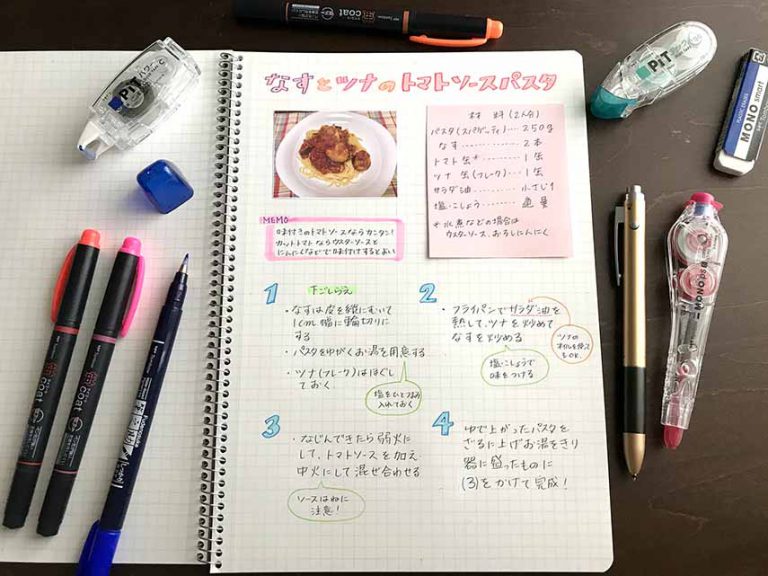 なすとツナのトマトソースパスタ
材料(2人分)
パスタ(スパゲッティ)…250g
なす…………2本
トマト缶*……1缶
ツナ缶(フレーク)…1缶
サラダ油…………小さじ1
塩・こしょう……適量
*水煮などの場合は
ウスターソース、おろしにんにく
MEMO
味付きのトマトソースならカンタン!
カットトマトならウスターソースと
にんにくなどで味付けするとよい
1 下ごしらえ
・なすは皮を縦にむいて
1cm幅に輪切りに
する
・パスタをゆがくお湯を用意する
・ツナ(フレーク)はほぐし
ておく
塩をひとつまみ
入れておく
2
・フライパンでサラダ油を
熱して、ツナを炒めて
なすを炒める
ツナの
オイルを使っても
OK.
塩・こしょうで
味をつける
3
・なじんできたら弱火に
して、トマトソースを加え
中火にして混ぜ合わせる
ソースはねに
注意!
4
ゆで上がったパスタを
ざるに上げお湯をきり
器に盛ったものに
(3)をかけて完成!
coat
PiT
PiT
MONO smart
MONO
coat
coat